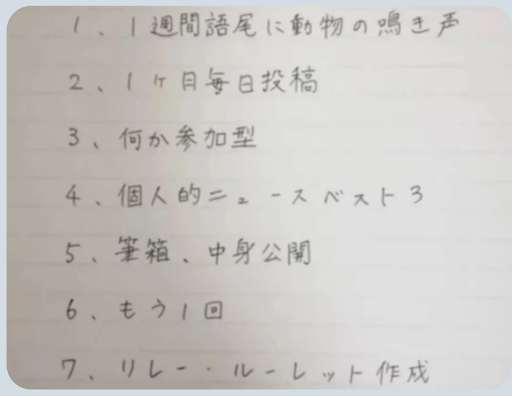 1、1週間語尾に動物の鳴き声
2、1ヶ月毎日投稿
3、何か参加型
4、個人的ニュースベスト3
5、筆箱、中身公開
6、もう1回
7、リレー・ルーレット作成